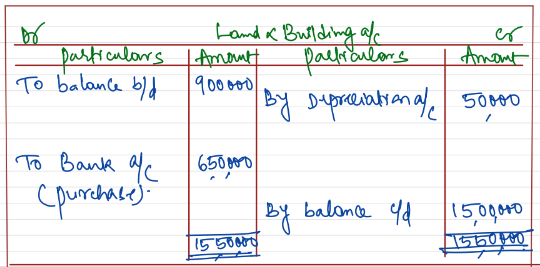 Dr Land & Building a/c Cr
Particulars Amount Particulars Amount
To balance b/d 900000
By Depreciation a/c 50000
To Bank a/c 650,000
(purchase).
By balance c/d 15,00,000
1550000 1550000